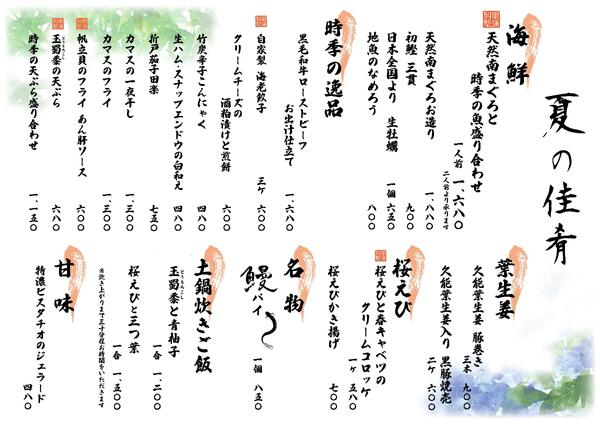 夏の佳肴
海鮮
天然南まぐろと
時季の魚盛り合わせ
一人前 一、六八〇
二人前より承ります
天然南まぐろお造り 一、八八〇
初鰹 三貫 九〇〇
日本全国より 生牡蠣 一個 六五〇
地魚のなめろう 八〇〇
時季の逸品
黒毛和牛ローストビーフ
お出汁仕立て 一、六八〇
自家製 海老餃子 三ケ 六〇〇
クリームチーズの
酒粕漬けと煎餅 六〇〇
竹炭辛子こんにゃく 四八〇
生ハム・スナップエンドウの白和え 四八〇
折戸茄子田楽 七五〇
カマスの一夜干し 一、三〇〇
カマスのフライ 一、三〇〇
帆立貝のフライ あん肝ソース 六八〇
玉蜀黍の天ぷら 六八〇
時季の天ぷら盛り合わせ 一、一五〇
葉生姜
久能葉生姜 豚巻き 三本 九〇〇
久能葉生姜入り 黒豚焼売 二ケ 六〇〇
桜えび
桜えびと春キャベツの
クリームコロッケ 一ケ 五八〇
桜えびかき揚げ 七〇〇
名物
鰻パイ 一個 八五〇
土鍋炊きご飯
玉蜀黍と青柚子 一合 一、二〇〇
桜えびと三つ葉 一合 一、五〇〇
甘味
特濃ピスタチオのジェラード 四八〇